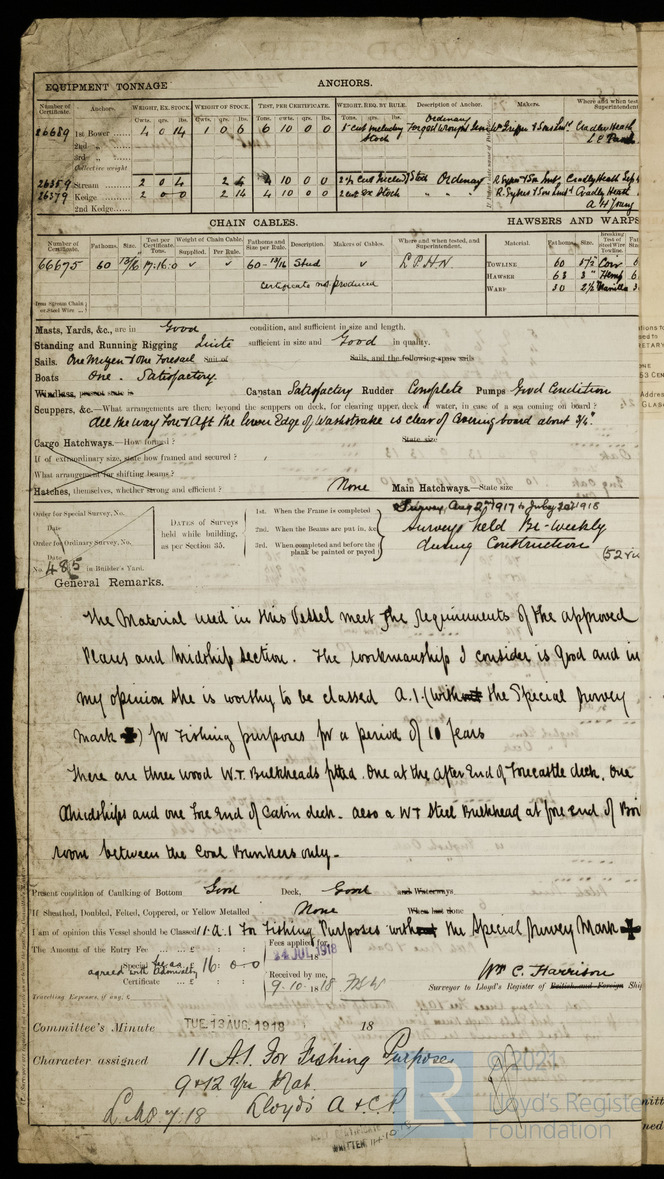 EQUIPMENT TONNAGE ANCHORS.
Number of Certificate. Anchors. WEIGHT, EX. STOCK. WEIGHT OF STOCK. TEST, PER CERTIFICATE. WEIGHT, REQ. BY RULE. Description of Anchor. Makers. Where and when tested Superintendent
Cwts. qrs. lbs. Cwts. qrs. lbs. Tons. cwts. qrs. lbs.
Ordinary
26689 1st Bower 4 0 14 1 0 6 6 10 0 0 5 cwt including Stock Forged Wrought Iron Cradley Heath
2nd „
3rd „
Collective weight
26359 Stream 2 0 4 2 6 4 10 0 0 Stock Ordinary R. Sykes & Son Cradley Heath
26379 Kedge 2 0 0 2 14 4 10 0 0 2 cwt ex Stock „ „ R. Sykes & Son Cradley Heath
2nd Kedge
A H Young
CHAIN CABLES. HAWSERS AND WARPS
Number of Certificate. Fathoms. Size. Test per Certificate. Tons. Weight of Chain Cable. Supplied. Per Rule. Fathoms and Size per Rule. Description. Makers of Cables. Where and when tested, and Superintendent. Material Fathoms Size. Breaking Test of Steel Wire Towline.
66675 60 13/16 17·16·0 ✓ ✓ 60 - 13/16 Stud ✓ L. P. H. N. TOWLINE 60 5½" Coir
Certificate not produced HAWSER 63 3" Hemp
WARP 30 2½" Manilla
Iron Stream Chain or Steel Wire
Masts, Yards, &c., are in Good condition, and sufficient in size and length.
Standing and Running Rigging Quite sufficient in size and Good in quality.
Sails. One Mizen & One Foresail Suit of Sails, and the following spare sails
Boats One. Satisfactory.
Windlass, present state is Capstan Satisfactory Rudder Complete Pumps Good Condition
Scuppers, &c.—What arrangements are there beyond the scuppers on deck, for clearing upper deck of water, in case of a sea coming on board?
All the way Fore & Aft the lower Edge of Washstrake is clear of Covering board about ¾".
Cargo Hatchways.—How formed? State size
If of extraordinary size, state how framed and secured?
What arrangement for shifting beams?
Hatches, themselves, whether strong and efficient? None Main Hatchways.—State size
Order for Special Survey, No.
Date
Order for Ordinary Survey, No.
Date
No. 485 in Builder's Yard.
DATES of Surveys held while building, as per Section 35.
1st. When the Frame is completed
2nd. When the Beams are put in, &c.
3rd. When completed and before the plank be painted or payed
Survey, Aug 2nd 1917 to July 20th 1918
Surveys held Bi-Weekly
during Construction
General Remarks.
The Material used in this Vessel meet the requirements of the approved
Plans and Midship section. The workmanship I consider is Good and in
my opinion she is worthy to be classed A.1. (without the Special Survey
Mark ✠) for Fishing purposes for a period of 10 Years
There are three wood W.T. Bulkheads fitted. One at the After End of Forecastle deck, One
Amidships and one Fore End of Cabin deck. also a WT Steel Bulkhead at fore end of Boi
room between the Coal Bunkers only.
Present condition of Caulking of Bottom Good Deck, Good and Waterways
If Sheathed, Doubled, Felted, Coppered, or Yellow Metalled None When last done
I am of opinion this Vessel should be Classed 11·A·1 For Fishing Purposes without the Special Survey Mark ✠
The Amount of the Entry Fee £ : : Fees applied for,
24 JUL 1918
Special fee as agreed with Admiralty £ 16 : 0 - 0
Certificate £ : : Received by me,
9.10.1918
Wm C. Harrison
Surveyor to Lloyd's Register of British and Foreign Ship
Travelling Expenses, if any, £
Committee's Minute TUE. 13 AUG. 1918 18
Character assigned 11 A.1. For Fishing Purposes
9 & 12 Yrs Mat.
Lloyd's A & C.P.
© 2021
Lloyd's Register
Foundation
WRITTEN